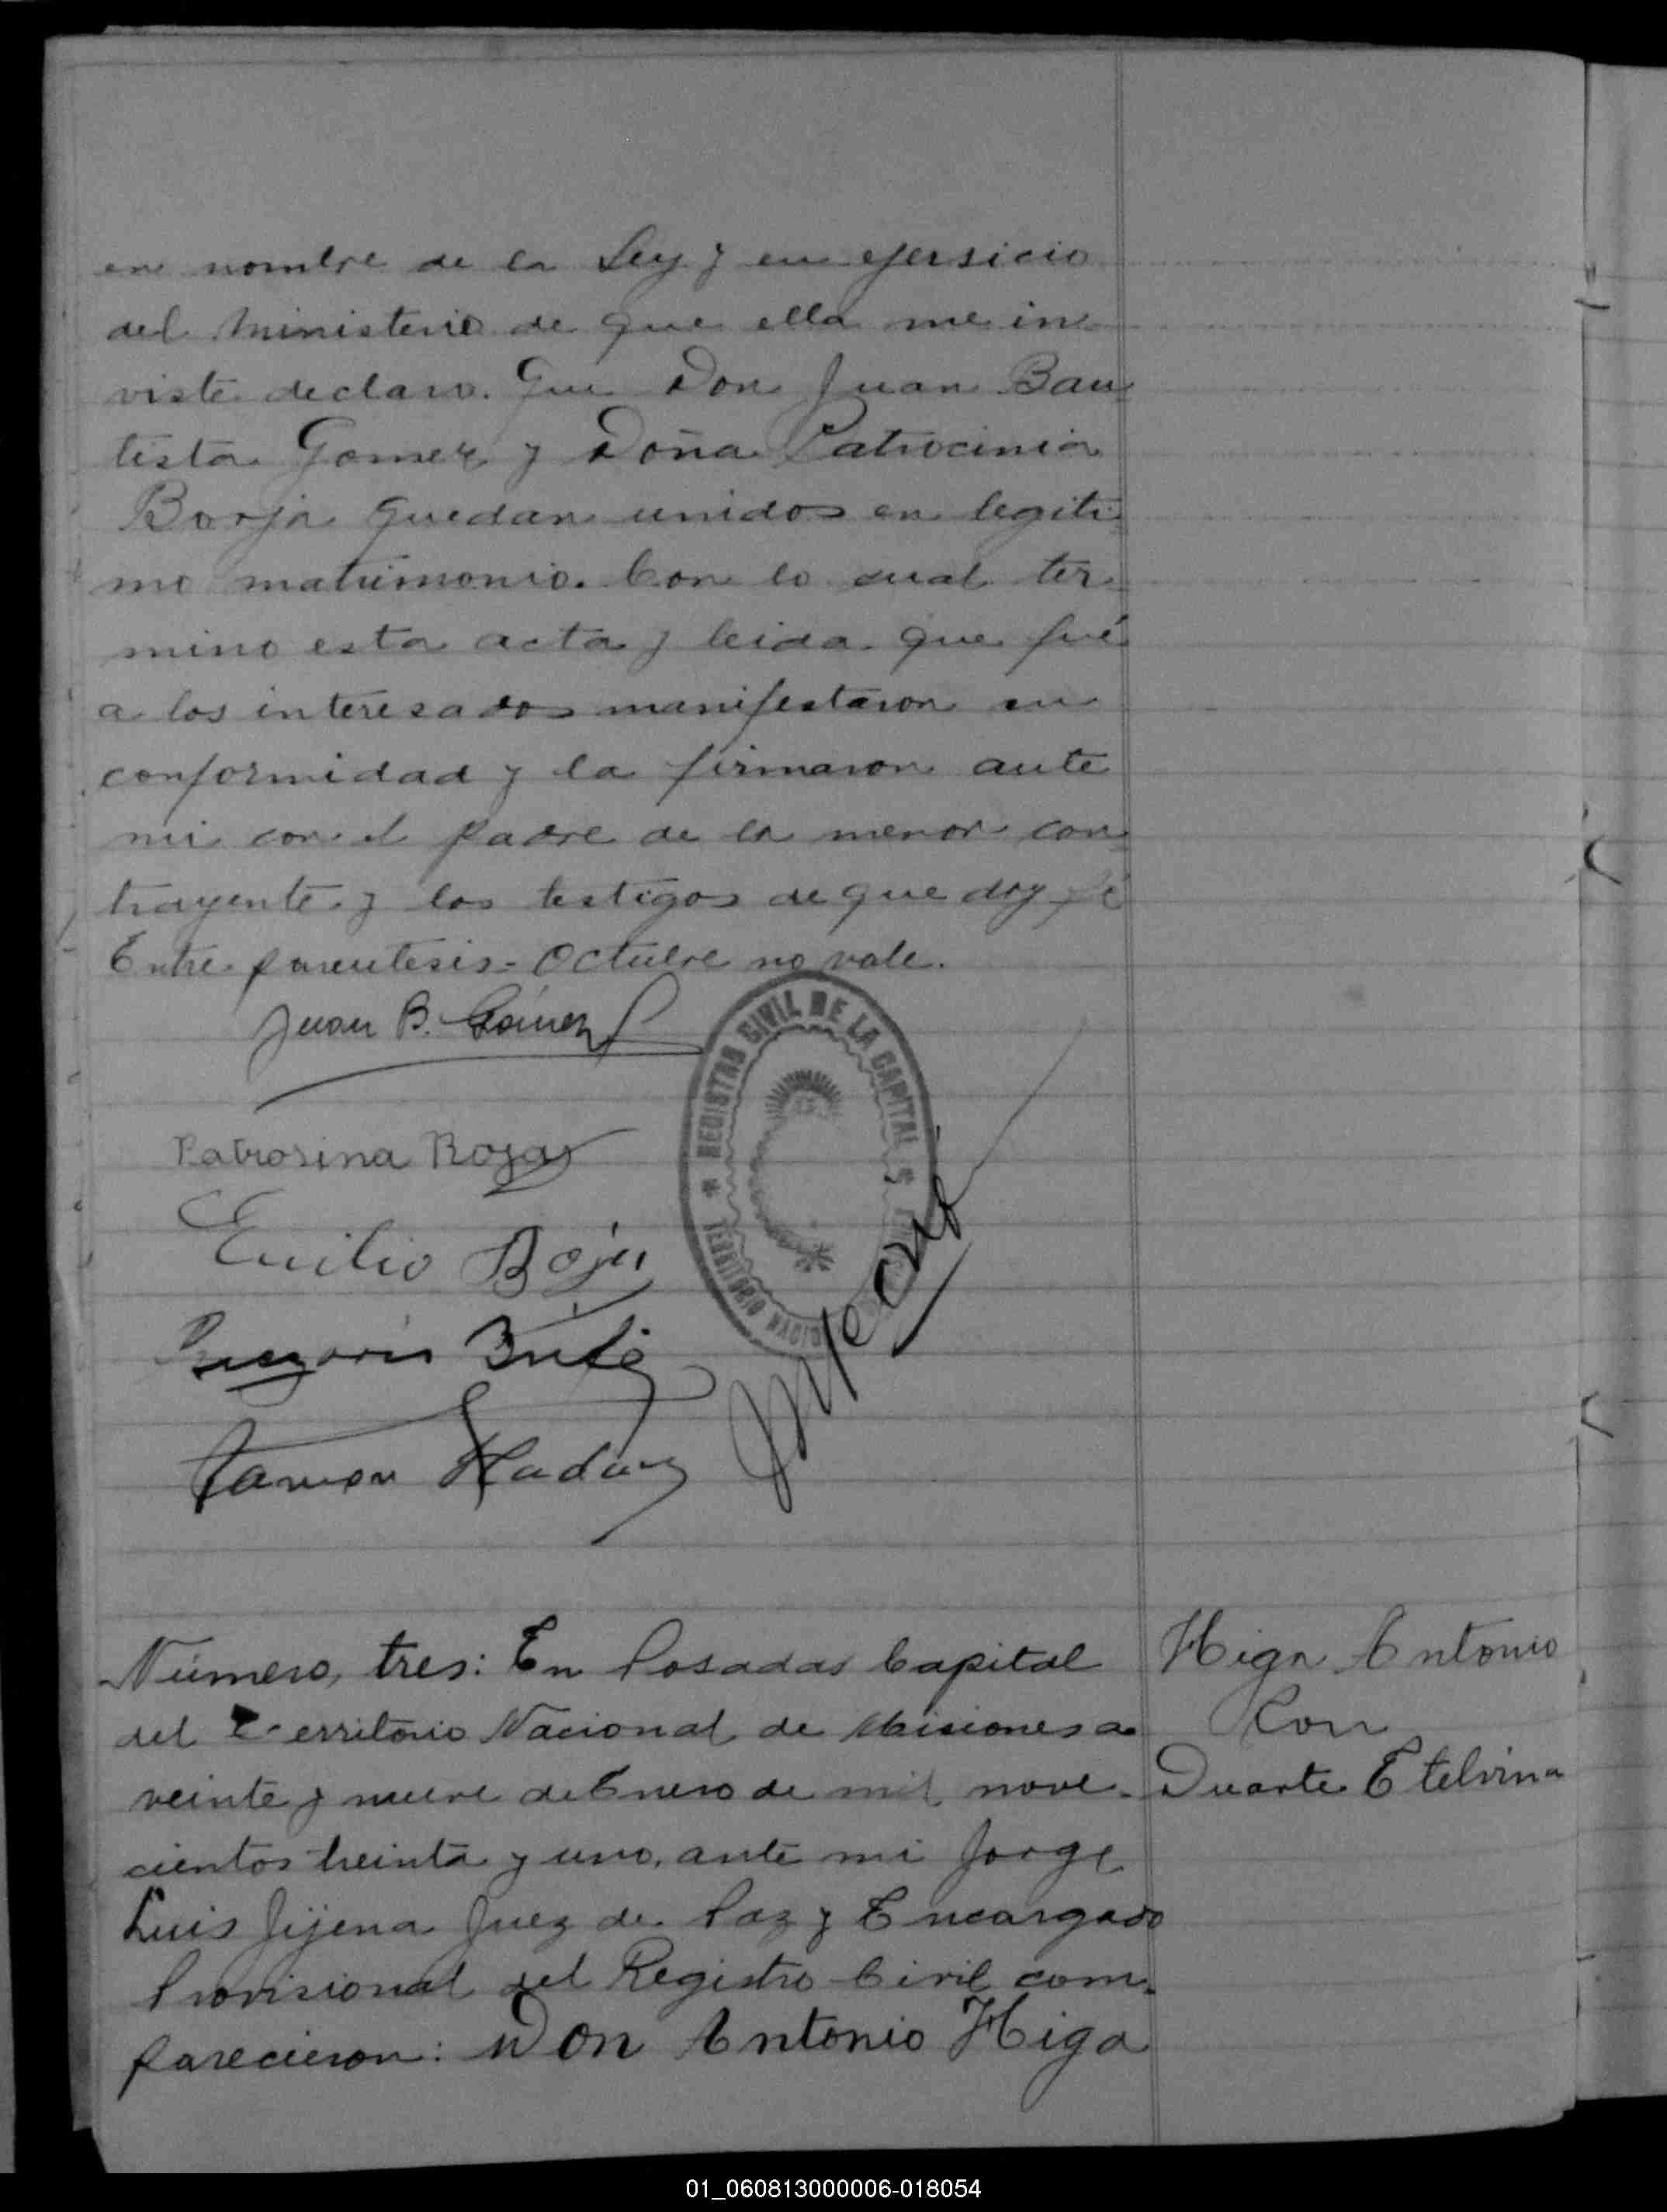 en nombre de la Ley y en ejersicio
del Ministerio de que ella me in
viste declaro. Que Don Juan Bau
tista Gomez y Doña Patrocinia
Borja quedan unidos en legiti
mo matrimonio. Con lo cual ter
mino esta acta y leida que fué
a los interesados manifestaron su
conformidad y la firmaron ante
mi con el padre de la menor con
trayente y los testigos de que doy fé
Entre parentesis - Octubre no vale.
Juan B. Gómez
REGISTRO CIVIL DE LA CAPITAL
TERRITORIO
Patrosina Roja
Emilio
Ramon
Número, tres: En Posadas Capital
del Territorio Nacional de Misiones a
veinte y nueve de Enero de mil nove-
cientos treinta y uno, ante mi Jorge
Luis Jijena Juez de Paz y Encargado
Provisional del Registro Civil com-
parecieron: Don Antonio Higa
Higa Antonio
Con
Duarte Etelvina
01_060813000006-018054